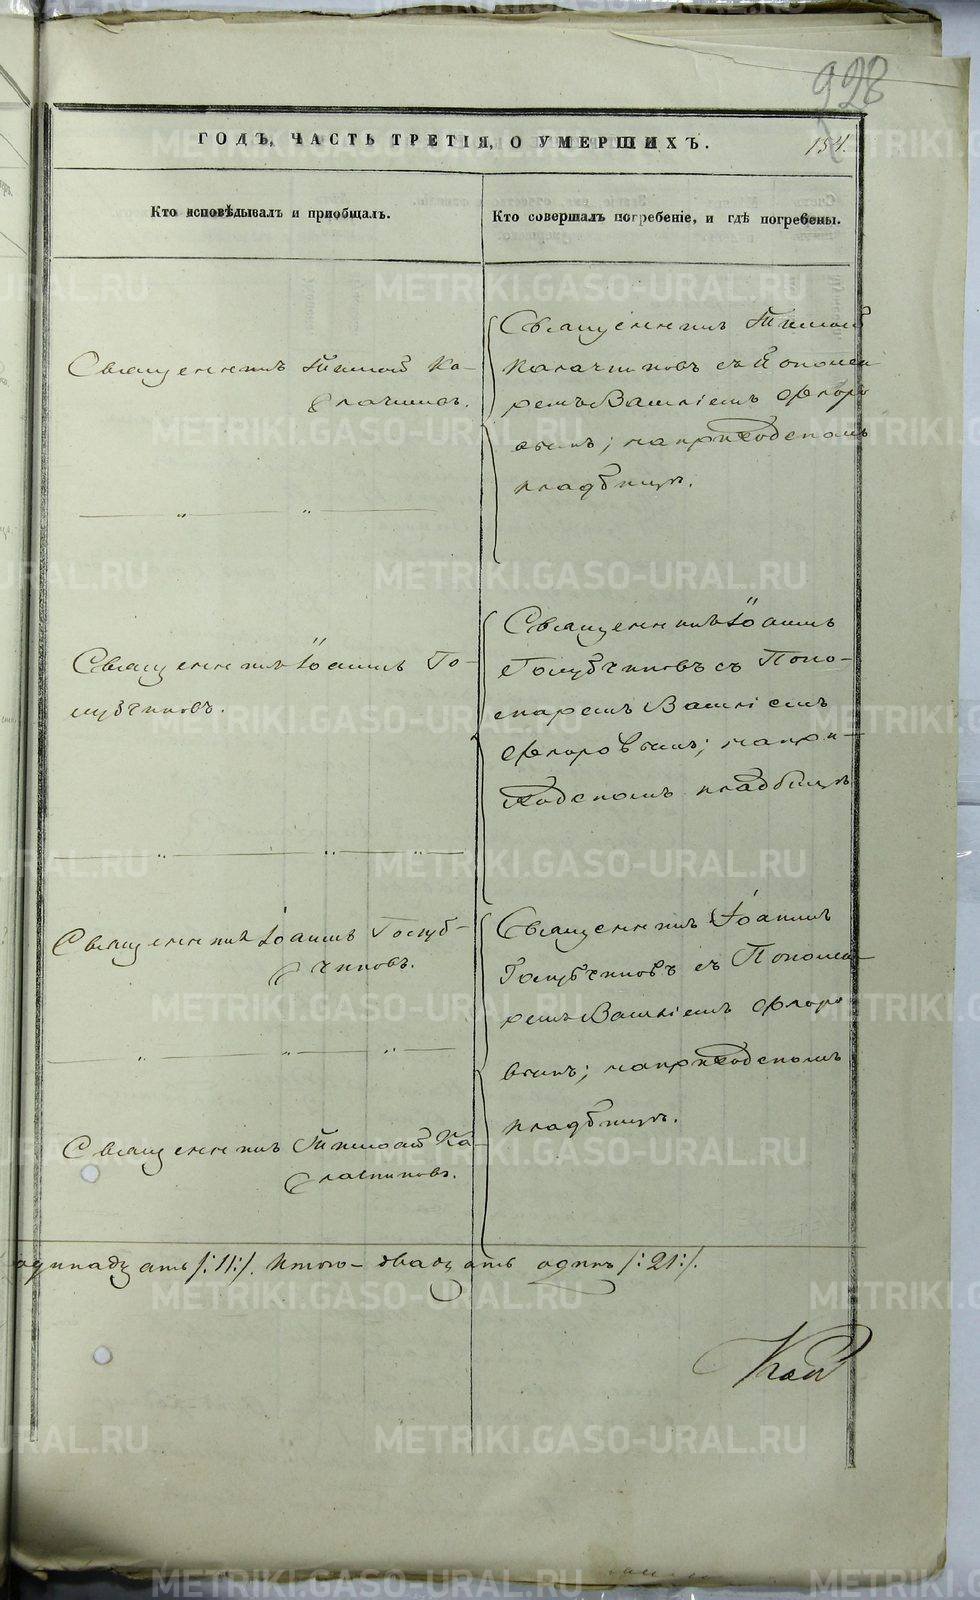 928
154.
ГОДЪ, ЧАСТЬ ТРЕТІЯ, О УМЕРШИХЪ.
Кто исповѣдывалъ и пріобщалъ.
Кто совершалъ погребеніе, и гдѣ погребены.
Священникъ Тимофей Ка-
лачниковъ.
Священникъ Тимофей
Калачниковъ съ Понома-
ремъ Василіемъ Флоро
вымъ; на приходскомъ
кладбищѣ.
Священникъ Іоаннъ Го-
лубчиковъ.
Священникъ Іоаннъ
Голубчиковъ съ Поно-
маремъ Василіемъ
Флоровымъ; на при-
ходскомъ кладбищѣ
Священникъ Іоаннъ Голуб-
чиковъ.
Священникъ Іоаннъ
Голубчиковъ съ Понома-
ремъ Василіемъ Флоро
вымъ; на приходскомъ
кладбищѣ.
Священникъ Тимофей Ка-
лачниковъ.
одинадцать /:11:/. Итого - двадцать одинъ /:21:/.
METRIKI.GASO-URAL.RU